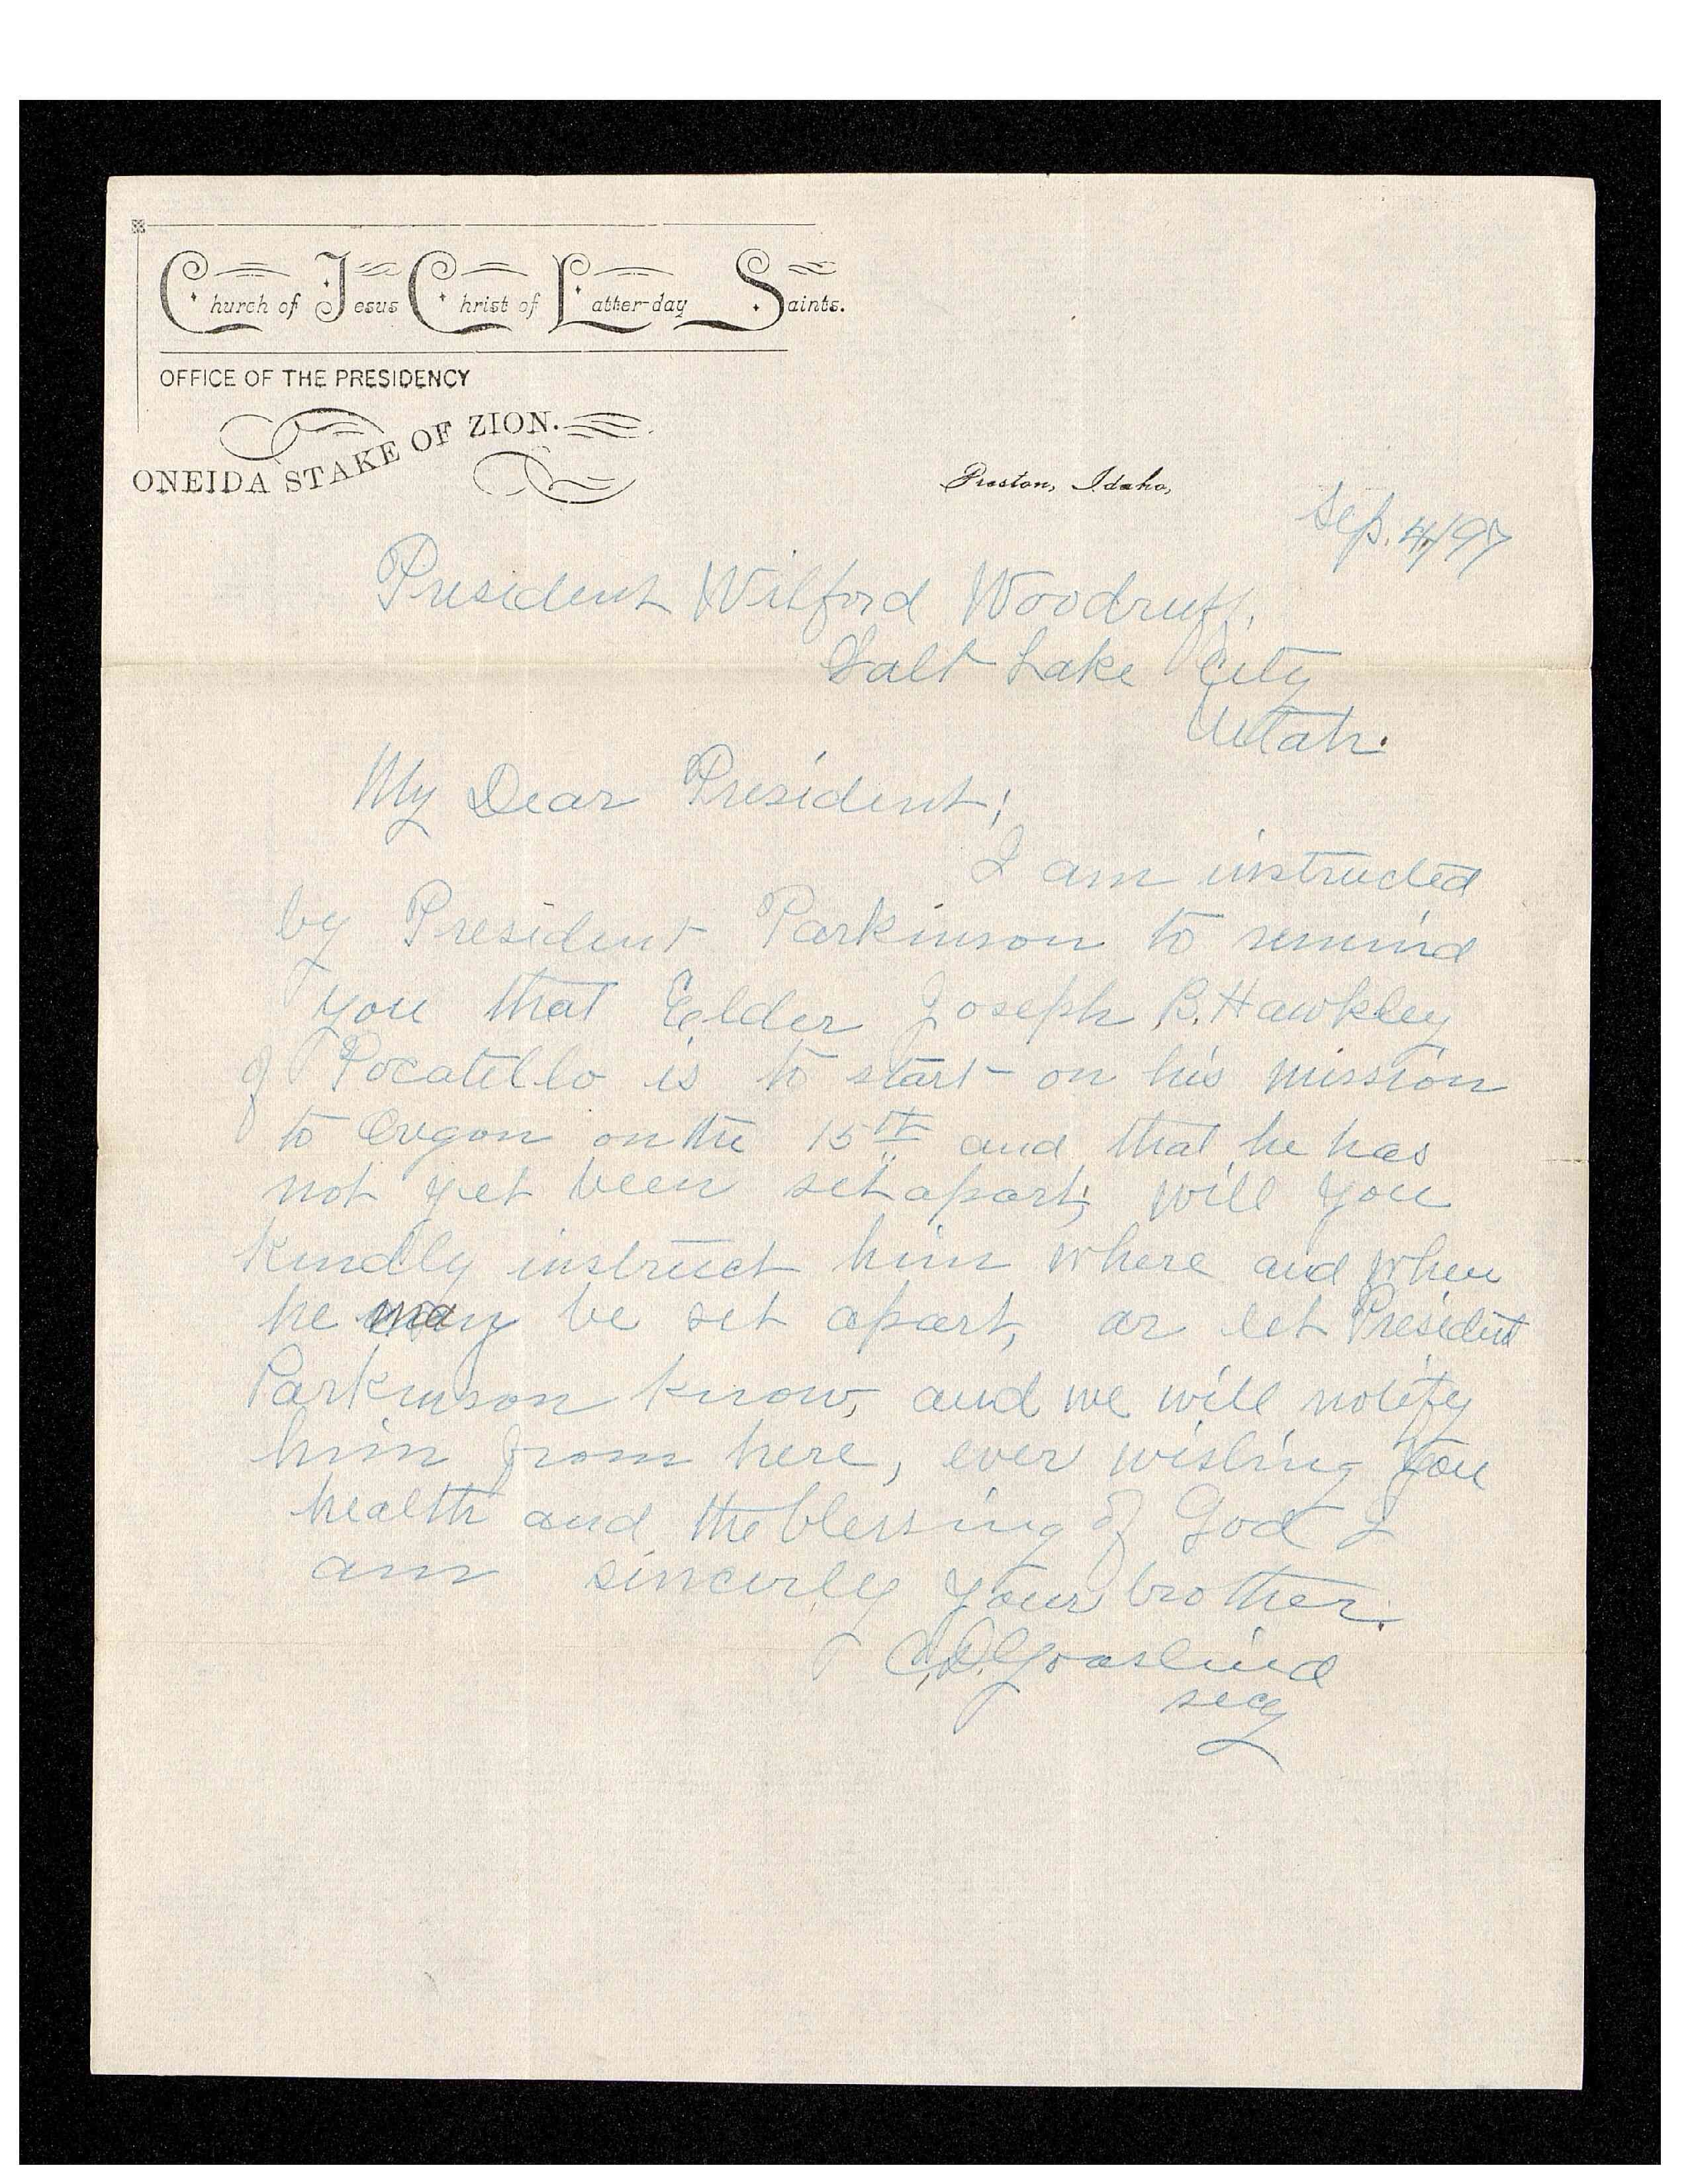 Church of Jesus Christ of Latter-day Saints.
OFFICE OF THE PRESIDENCY
ONEIDA STAKE OF ZION.
Preston, Idaho,
Sep. 4/97
President Wilford Woodruff,
Salt Lake City
Utah.
My Dear President;
I am instructed
by President Parkinson to remind
you that Elder Joseph B. Hawkley
of Pocatello is to start on his mission
to Orgon on the 15th and that he has
not yet been set apart; will you
kindly instruct him where and when
he may be set apart, or let President
Parkinson know, and we will notify
him from here, ever wishing you
health and the blessing of God I
am sincerly your brother.
C. D. Goaslind
secy